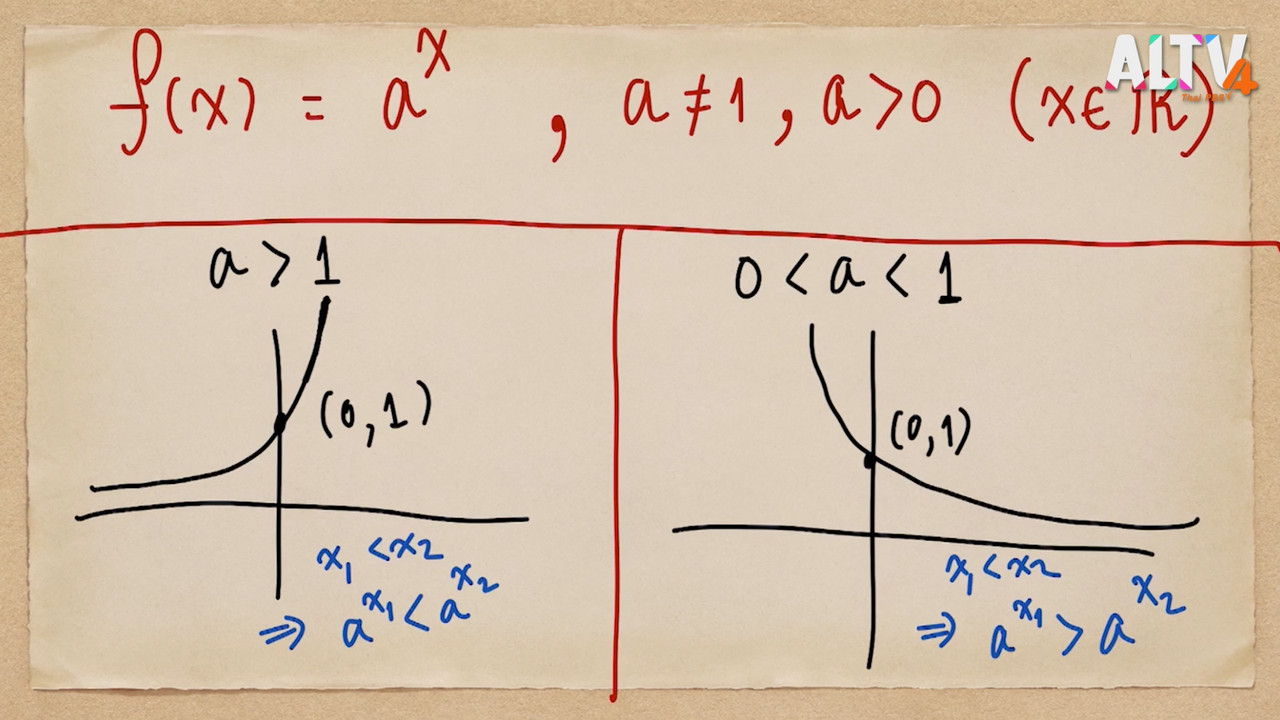 ALTV4
Thai PBS
f(x) = a^x , a ≠ 1 , a > 0 (x ∈ ℝ)
a > 1
(0,1)
x₁ < x₂
⇒ a^x₁ < a^x₂
0 < a < 1
(0,1)
x₁ < x₂
⇒ a^x₁ > a^x₂